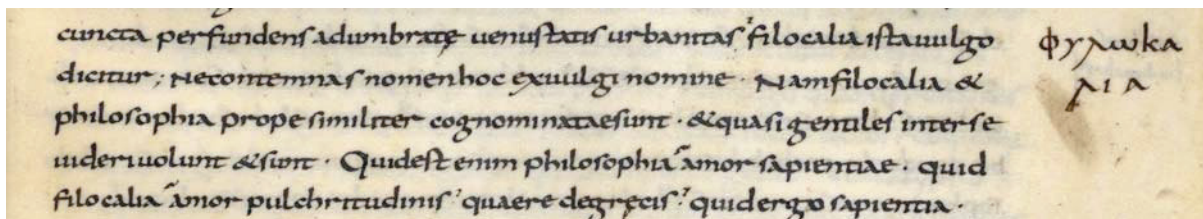 cuncta perfundens adumbratę uenustatis urbanitas filocalia ista uulgo
dicitur; Ne contemnas nomen hoc ex uulgi nomine · Nam filocalia &
philosophia prope similiter cognominatae sunt · & quasi gentiles inter se
uideri uolunt & sunt · Quid est enim philosophia amor sapientiae · quid
filocalia amor pulchritudinis quaere de gręcis quid ergo sapientia ·
φυλωκα
λια